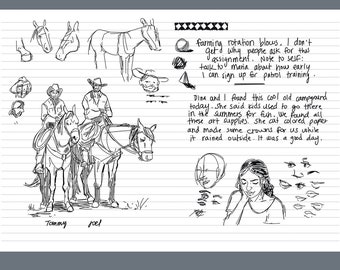 farming rotation blows. I don't
get why people ask for this
assignment. Note to self:
talk to maria about how early
I can sign up for patrol training.
Dina and I found this cool old campground
today. She said kids used to go there
in the summers for fun. We found all
these art supplies. She cut colored paper
and made some crowns for us while
it rained outside. It was a good day.
Tommy Joel